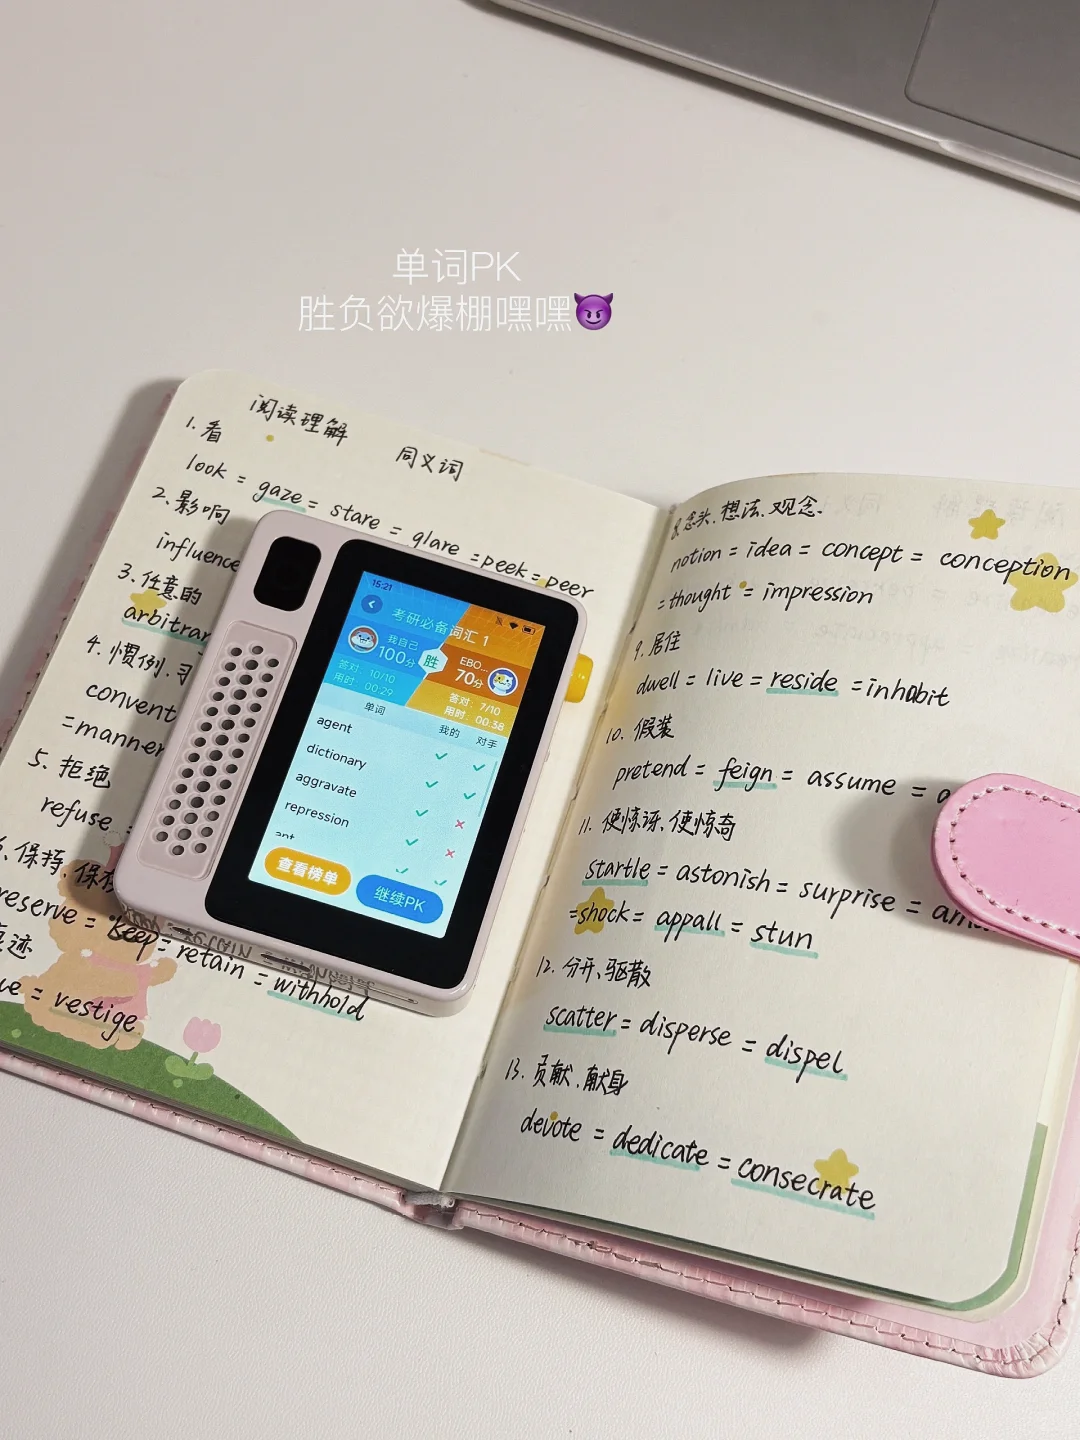 单词PK
胜负欲爆棚嘿嘿😈
阅读理解
同义词
1. 看
look = gaze = stare = glare = peek = peer
2. 影响
influence
3. 任意的
arbitrar
4. 惯例、寻
convent
= manner
5. 拒绝
refuse
、保持、保
reserve = keep = retain = withhold
迹
ue = vestige
15:21
考研必备词汇 1
我自己
100分
胜
EBO...
70分
答对: 10/10
用时: 00:29
答对: 7/10
用时: 00:38
单词 我的 对手
agent
dictionary
aggravate
repression
查看榜单
继续PK
8. 念头、想法、观念.
notion = idea = concept = conception
= thought = impression
9. 居住
dwell = live = reside = inhabit
10. 假装
pretend = feign = assume = a
11. 使惊讶、使惊奇
startle = astonish = surprise = ama
= shock = appall = stun
12. 分开、驱散
scatter = disperse = dispel
13. 贡献、献身
devote = dedicate = consecrate